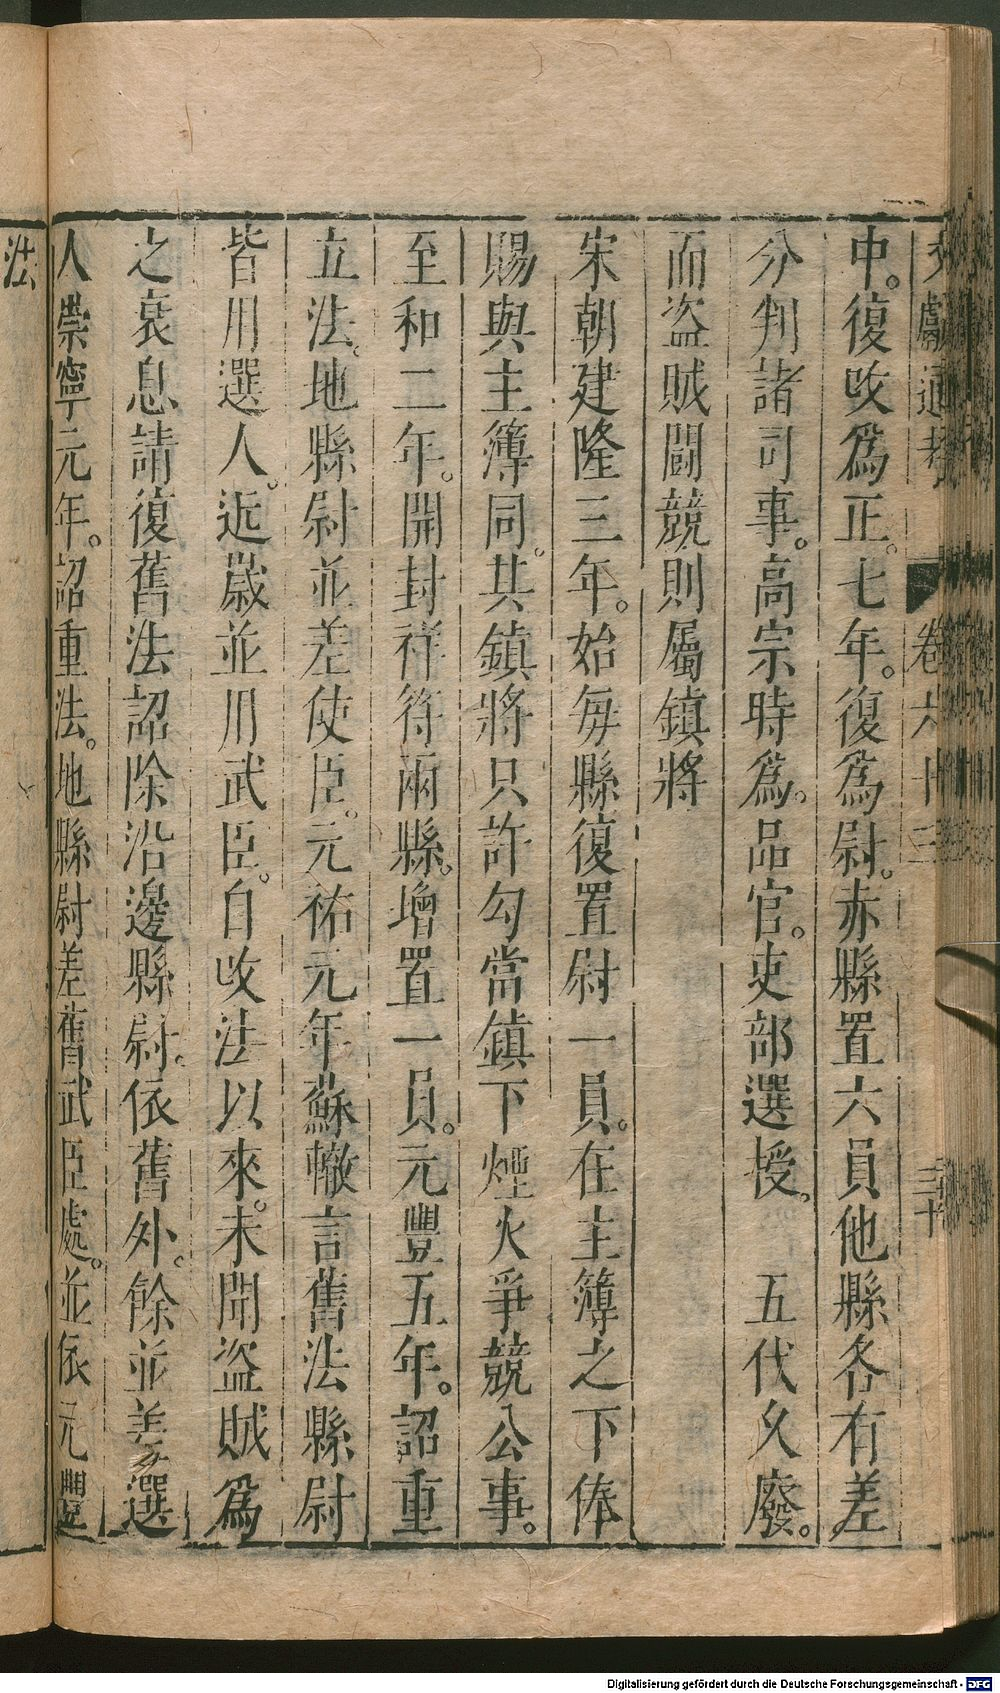 文獻通考 卷六十三 三十
中。復改爲正。七年。復爲尉。赤縣置六員他縣各有差。
分判諸司事。高宗時爲。品官。吏部選授。 五代久廢。
而盜賊鬪競則屬鎮將
宋朝建隆三年。始每縣復置尉一員。在主簿之下俸
賜與主簿同。共鎮將只許勾當鎮下煙火爭競公事。
至和二年。開封祥符兩縣。增置一員。元豐五年。詔重
立法。地縣尉並差使臣。元祐元年蘇轍言舊法縣尉
皆用選人。近歲並用武臣。自改法以來。未聞盜賊爲
之衰息請復舊法詔除沿邊縣尉。依舊外。餘並差選
人崇寧元年。詔重法。地縣尉差舊武臣處。並依元豐
法
Digitalisierung gefördert durch die Deutsche Forschungsgemeinschaft - DFG